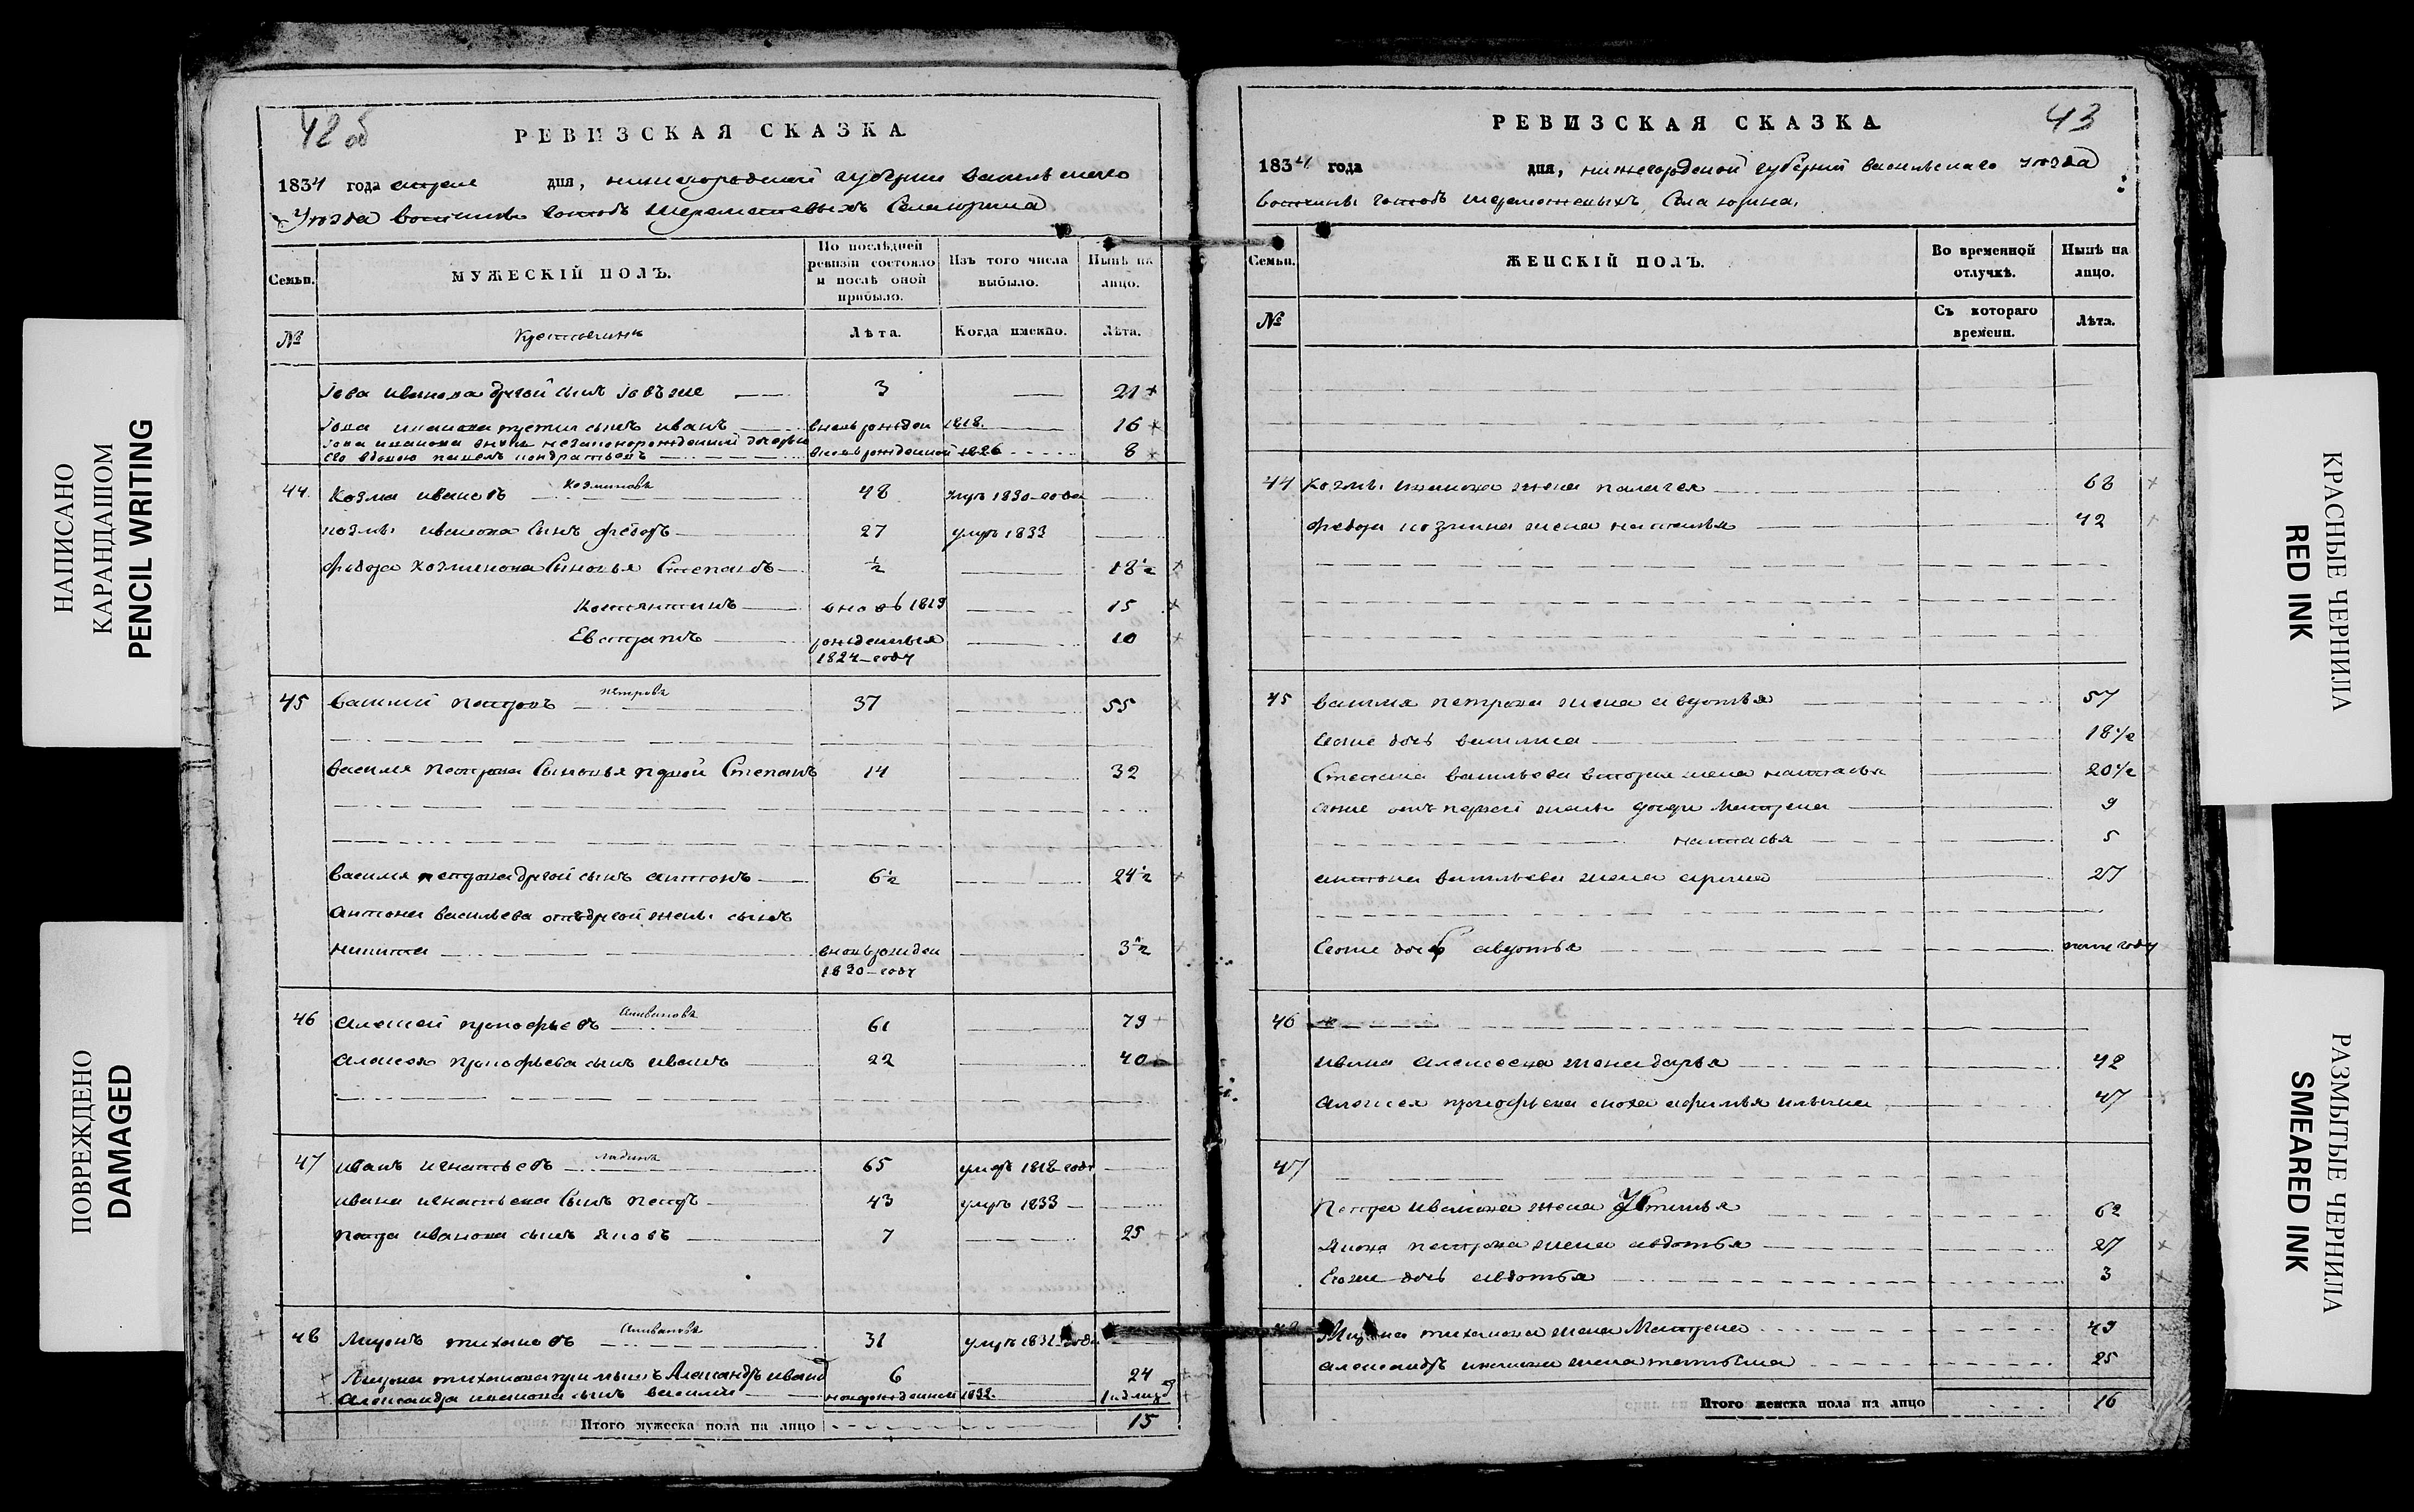 НАПИСАНО
КАРАНДАШОМ
PENCIL WRITING
ПОВРЕЖДЕНО
DAMAGED
42 об
РЕВИЗСКАЯ СКАЗКА
1834 года апреля дня, нижегородской губернии васильскаго
Уезда вотчины господъ Шереметевыхъ Села юрина
Семьи. МУЖЕСКІЙ ПОЛЪ. По послѣдней ревизіи состояло и послѣ оной прибыло. Изъ того числа выбыло. Нынѣ на лицо.
№ Крестьяне Лѣта. Когда именно. Лѣта.
Іова иванова другой сынъ Іовъ же 3 21
Іова иванова третий сынъ иванъ вновь рожден 1818. 16
Іова иванова внукъ незаконорожденный дочерью
его вдовою 1826 8
44 Козма ивановъ Козминовъ 48 умръ 1830 года
козмы иванова сынъ федоръ 27 умръ 1833
федора Козминова Сыновья Степанъ ½ 18½
Костянтинъ вновь 1819 15
Евстратъ рожденныя 1824 году 10
45 Василий петровъ петровъ 37 55
Василья петрова Сыновья первой Степанъ 14 32
Василья петрова другой сынъ антонъ 6½ 24½
Антона васильева отъ другой жены сынъ
никита вновь рожден 1830 году 3½
46 Алексей прокофьевъ 61 79
Алексея прокофьева сынъ иванъ 22 40
47 иванъ игнатьевъ 65 умеръ 1818 года
ивана игнатьева Сынъ петръ 43 умръ 1833
петра иванова сынъ яковъ 7 25
48 Миронъ тихановъ 31 умръ 1831 года
Мирона тиханова примышъ Александръ иванов 6 24
Александра иванова сынъ василий новорожденный 1832.
Итого мужеска пола на лицо 15
РЕВИЗСКАЯ СКАЗКА
43
1834 года дня, нижегородской губернии васильскаго уезда
вотчины господъ шереметевыхъ, Села юрина,
Семьи. ЖЕНСКІЙ ПОЛЪ. Во временной отлучкѣ. Нынѣ на лицо.
№ Съ котораго времени. Лѣта.
44 Козмы иванова жена палагея 68
федора козмина жена наталья 42
45 василья петрова жена авдотья 57
Егоже дочь василиса 18½
Степана васильева вторая жена настасья 20½
егоже отъ первой жены дочери Матрена 9
настасья 5
антона васильева жена арина 27
Егоже дочь авдотья году
46
ивана алексеева жена дарья 42
алексея прокофьева сноха афимья ильина 47
47
Петра иванова жена Устинья 62
Якова петрова жена авдотья 27
Егоже дочь авдотья 3
48 Мирона тиханова жена Матрена 49
александра иванова жена татьяна 25
Итого женска пола на лицо 16
КРАСНЫЕ ЧЕРНИЛА
RED INK
РАЗМЫТЫЕ ЧЕРНИЛА
SMEARED INK